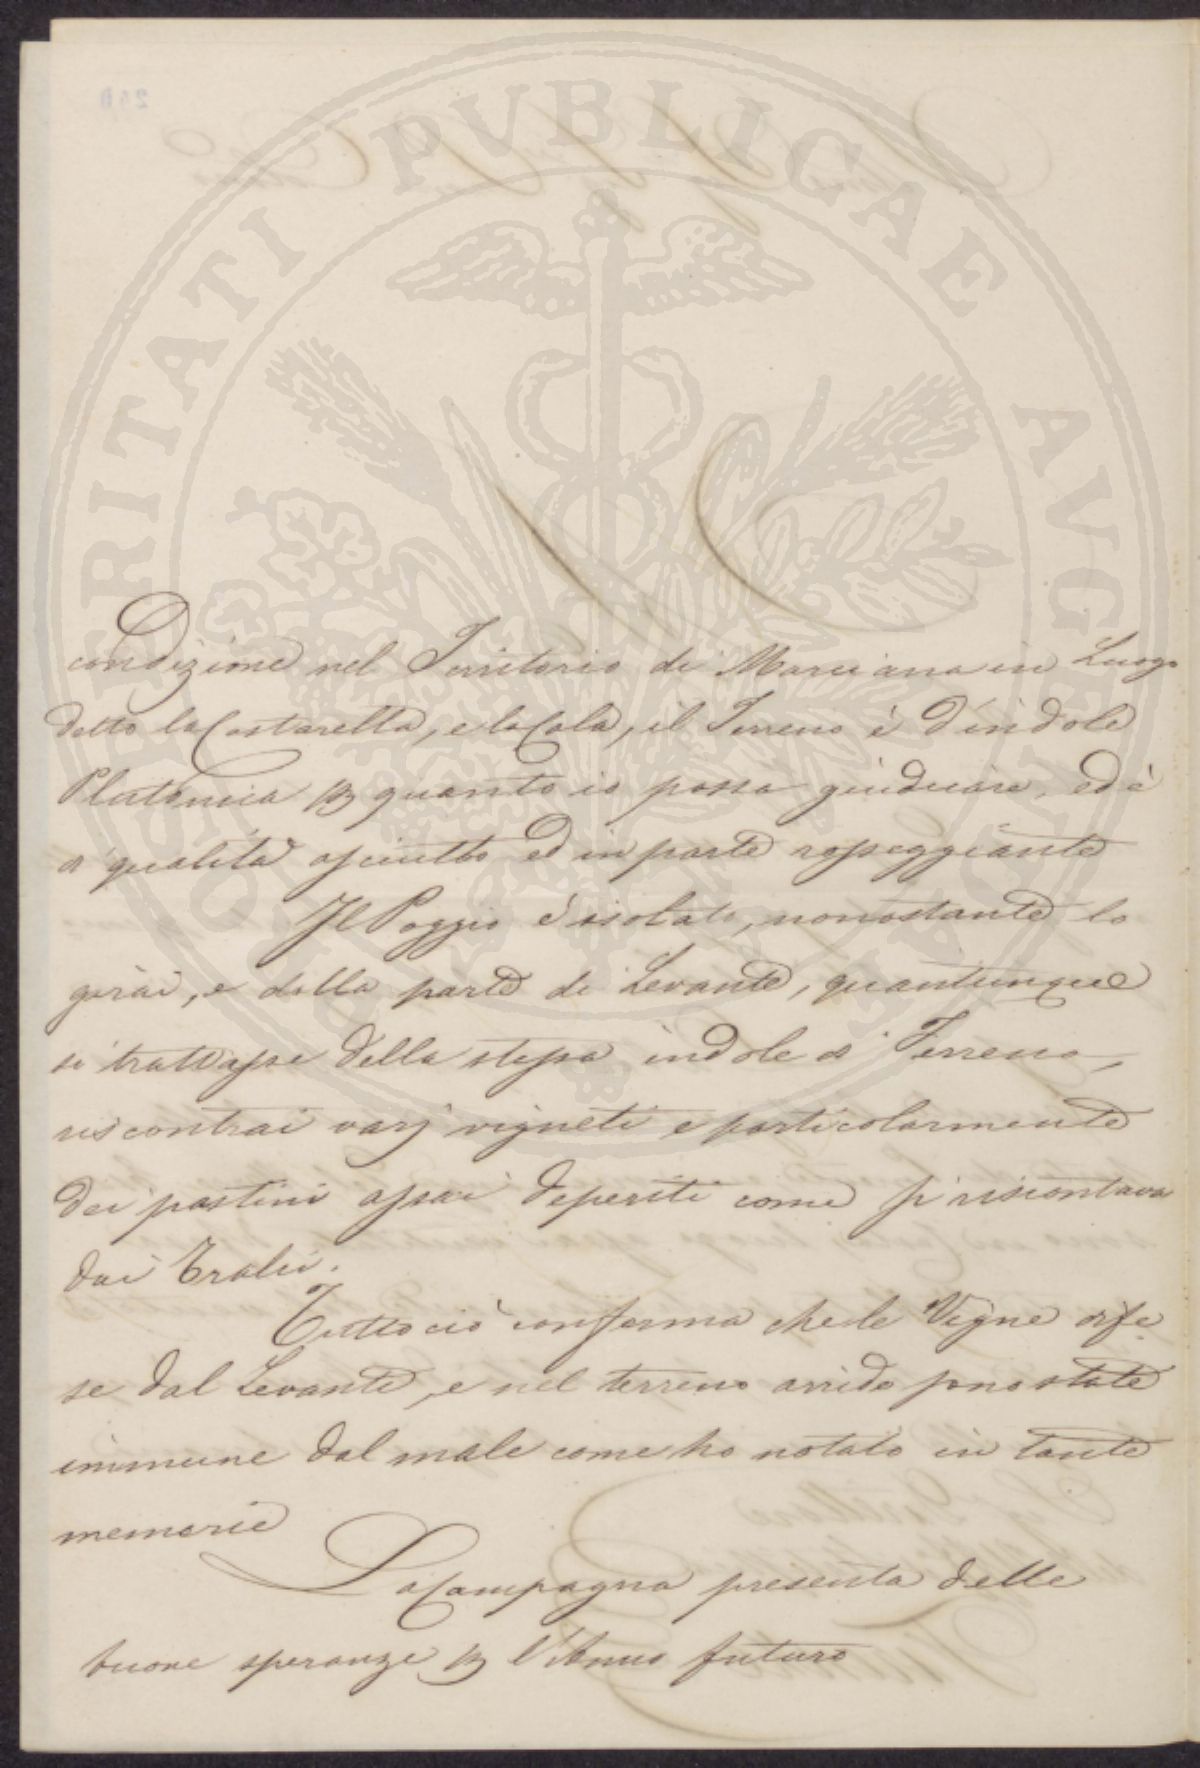 PROSPERITATI PVBLICAE AVGENDAE
condizione nel Territorio di Marciana in Luogo
detto la Costarella, e la Cala, il Terreno è d'indole
Plutonica p quanto io possa giudicare, ed è
di qualità asciutto ed in parte rosseggiante
Il Poggio è isolato, nonostante lo
girai, e dalla parte di Levante, quantunque
si trattasse della stessa indole di Terreno,
riscontrai varj vigneti e particolarmente
dei pastini assai deperiti come si riscontrava
dai Tralci.
Tutto ciò conferma che le Vigne dife
se dal Levante, e nel terreno arrido sono state
immune dal male come ho notato in tante
memorie
La Campagna presenta delle
buone speranze p l'Anno futuro